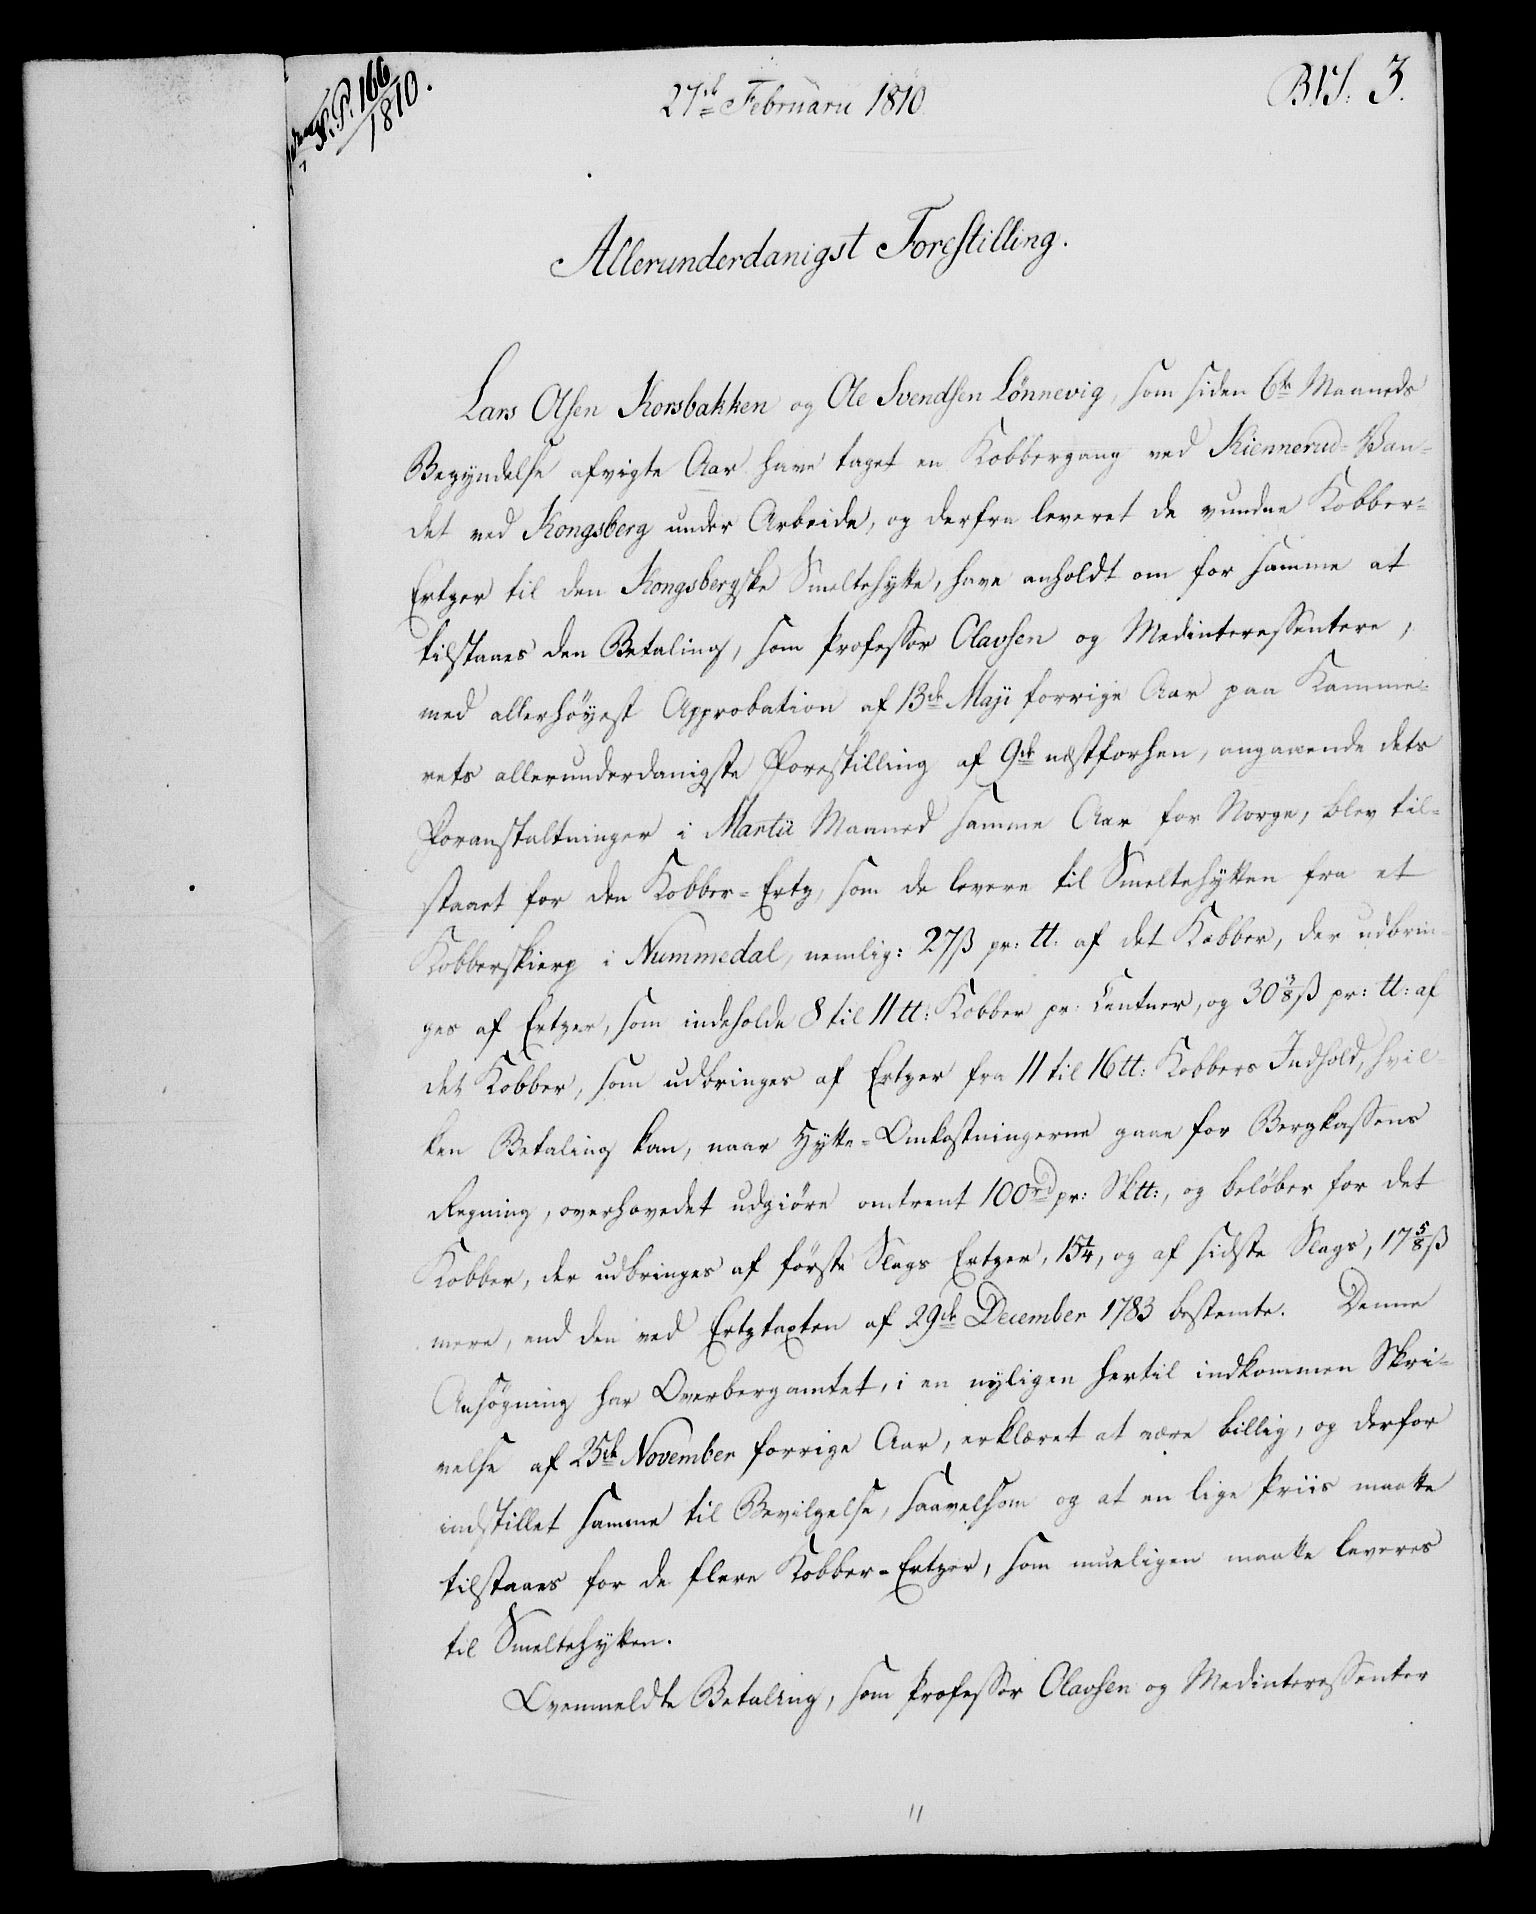 S. P. 166
1810.
27de Februarii 1810
B.I.S. 3.
Allerunderdanigst Forestilling.
Lars Olsen Korsbakken og Ole Svendsen Lönnevig, som siden 6te Maaneds
Begyndelse afvigte Aar have taget en Kobbergang ved Kiennerud-Van-
det ved Kongsberg under Arbeide, og derfra leveret de vundne Kobber-
Ertzer til den Kongsbergske Smeltehytte, have anholdt om for samme at
tilstaaes den Betaling, som Professor Olavsen og Medinteressentere,
med allerhöyest Approbation af 13de Maji forrige Aar paa Kamme-
rets allerunderdanigste Forestilling af 9de næstforhen, angaaende dets
Foranstaltninger i Martii Maaned samme Aar for Norge, blev til-
staaet for den Kobber-Ertz, som de levere til Smeltehytten fra et
Kobberskierp i Nummedal, nemlig: 27ß pr: tt. af det Kobber, der udbrin-
ges af Ertzer, som indeholde 8 til 11 tt: Kobber pr. Centner, og 30 3/8 ß pr: tt: af
det Kobber, som udbringes af Ertzer fra 11 til 16 tt: Kobbers Indhold, hvil-
ken Betaling kan, naar Hytte-Omkostningerne gaae for Bergkassens
Regning, overhovedet udgiöre omtrent 100 rd pr: Sktt:, og beløber for det
Kobber, der udbringes af förste Slags Ertzer, 15 1/4, og af sidste Slags, 17 5/8 ß
mere, end den ved Ertztaxten af 29de December 1783 bestemte. Denne
Ansögning har Overbergamtet, i en nyligen hertil indkommen Skri-
velse af 25de November forrige Aar, erklæret at være billig, og derfor
indstillet samme til Bevilgelse, saavelsom og at en lige Priis maatte
tilstaaes for de flere Kobber-Ertzer, som mueligen maatte leveres
til Smeltehytten.
Ovenmeldte Betaling, som Professor Olavsen og Medinteressenter